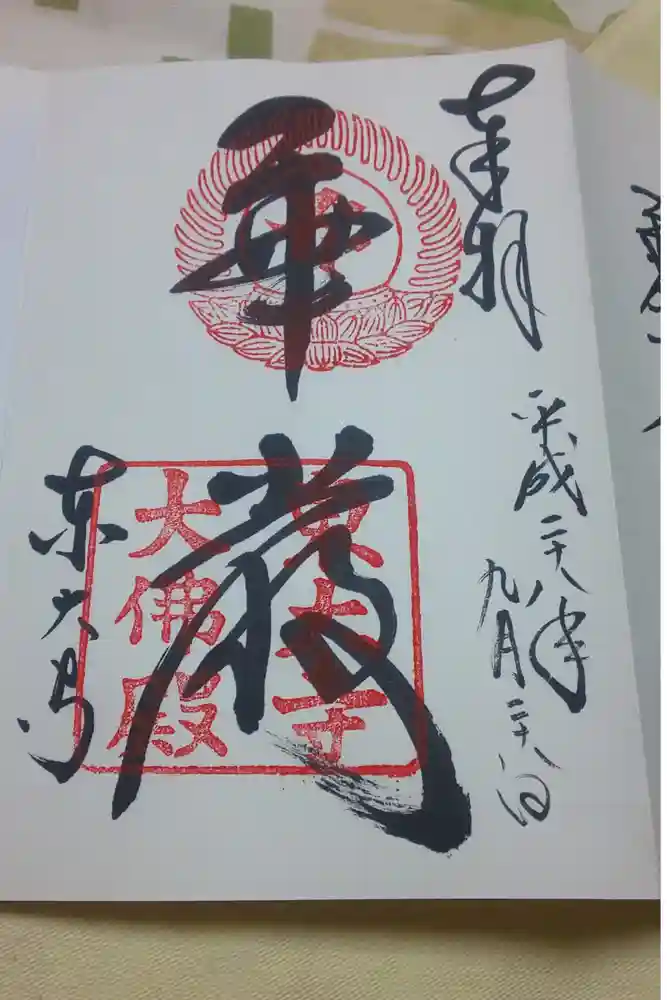 奉拝
平成二十八年
九月二十八日
華厳
東大寺
大佛殿
東大寺